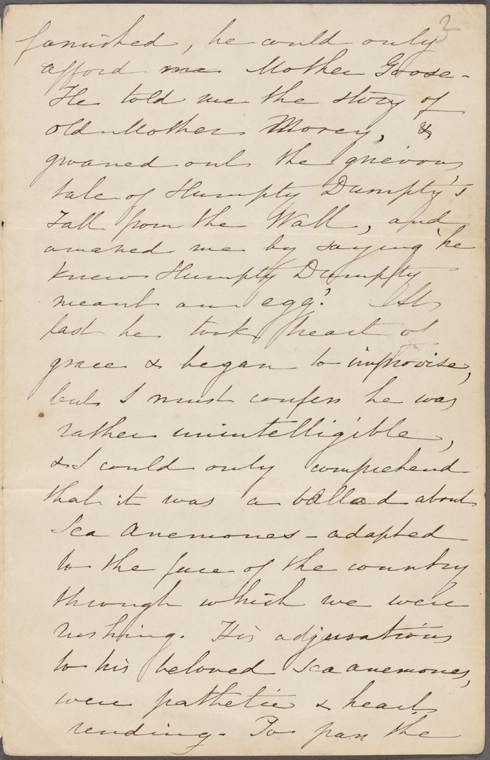 2
furnished, he could only
afford me Mother Goose -
He told me the story of
old Mother Morey, &
groaned out the grievous
tale of Humpty Dumpty's
Fall from the Wall, and
amazed me by saying 'he
knew Humpty Dumpty
meant an egg'! At
last he took heart of
grace & began to improvise,
but I must confess he was
rather unintelligible,
& I could only comprehend
that it was a ballad about
Sea Anemones - adapted
to the face of the country
through which we were
rushing. His adjurations
to his beloved Sea anemones,
were pathetic & heart
rending. To pass the